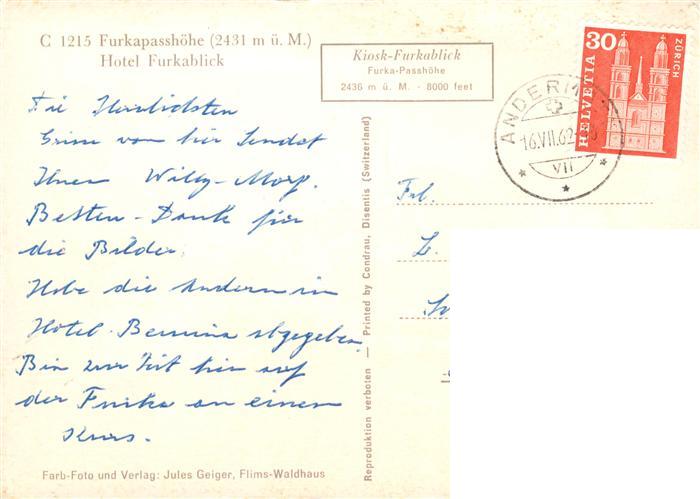 C 1215 Furkapasshöhe (2431 m ü. M.)
Hotel Furkablick
Kiosk-Furkablick
Furka-Passhöhe
2436 m ü. M. · 8000 feet
Die Herzlichsten
von hier Sendet
Ihnen Willy
Besten - Dank für
die Bilder.
Habe die Andern im
Hotel Bernina abgegeben.
Bin zur Zeit hier auf
der Furka an einem
Kurs.
Farb-Foto und Verlag: Jules Geiger, Flims-Waldhaus
Reproduktion verboten — Printed by Condrau, Disentis (Switzerland)
30
HELVETIA
ZÜRICH
16.VII.62
VII
Frl.